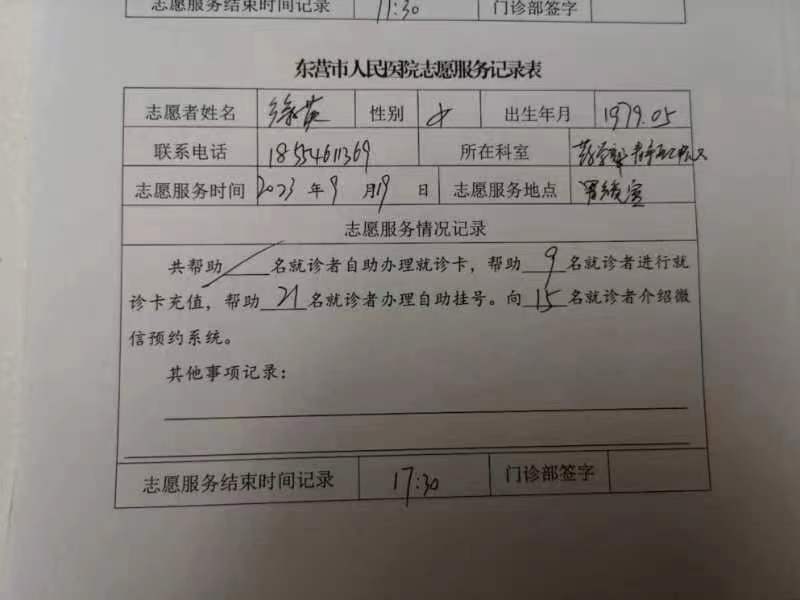 志愿服务结束时间记录 11:30 门诊部签字
东营市人民医院志愿服务记录表
志愿者姓名 徐英 性别 女 出生年月 1979.05
联系电话 18554611369 所在科室
志愿服务时间 2023 年 9 月 19 日 志愿服务地点
志愿服务情况记录
共帮助 / 名就诊者自助办理就诊卡，帮助 9 名就诊者进行就
诊卡充值，帮助 21 名就诊者办理自助挂号。向 15 名就诊者介绍微
信预约系统。
其他事项记录：
志愿服务结束时间记录 17:30 门诊部签字